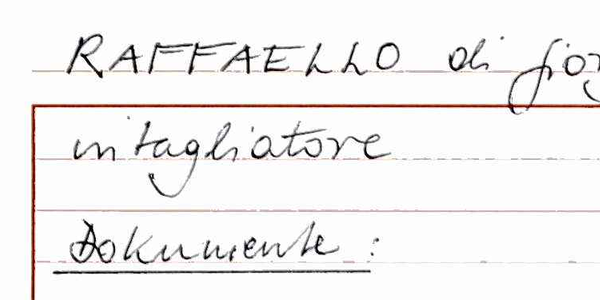 RAFFAELLO di
intagliatore
Dokumente :